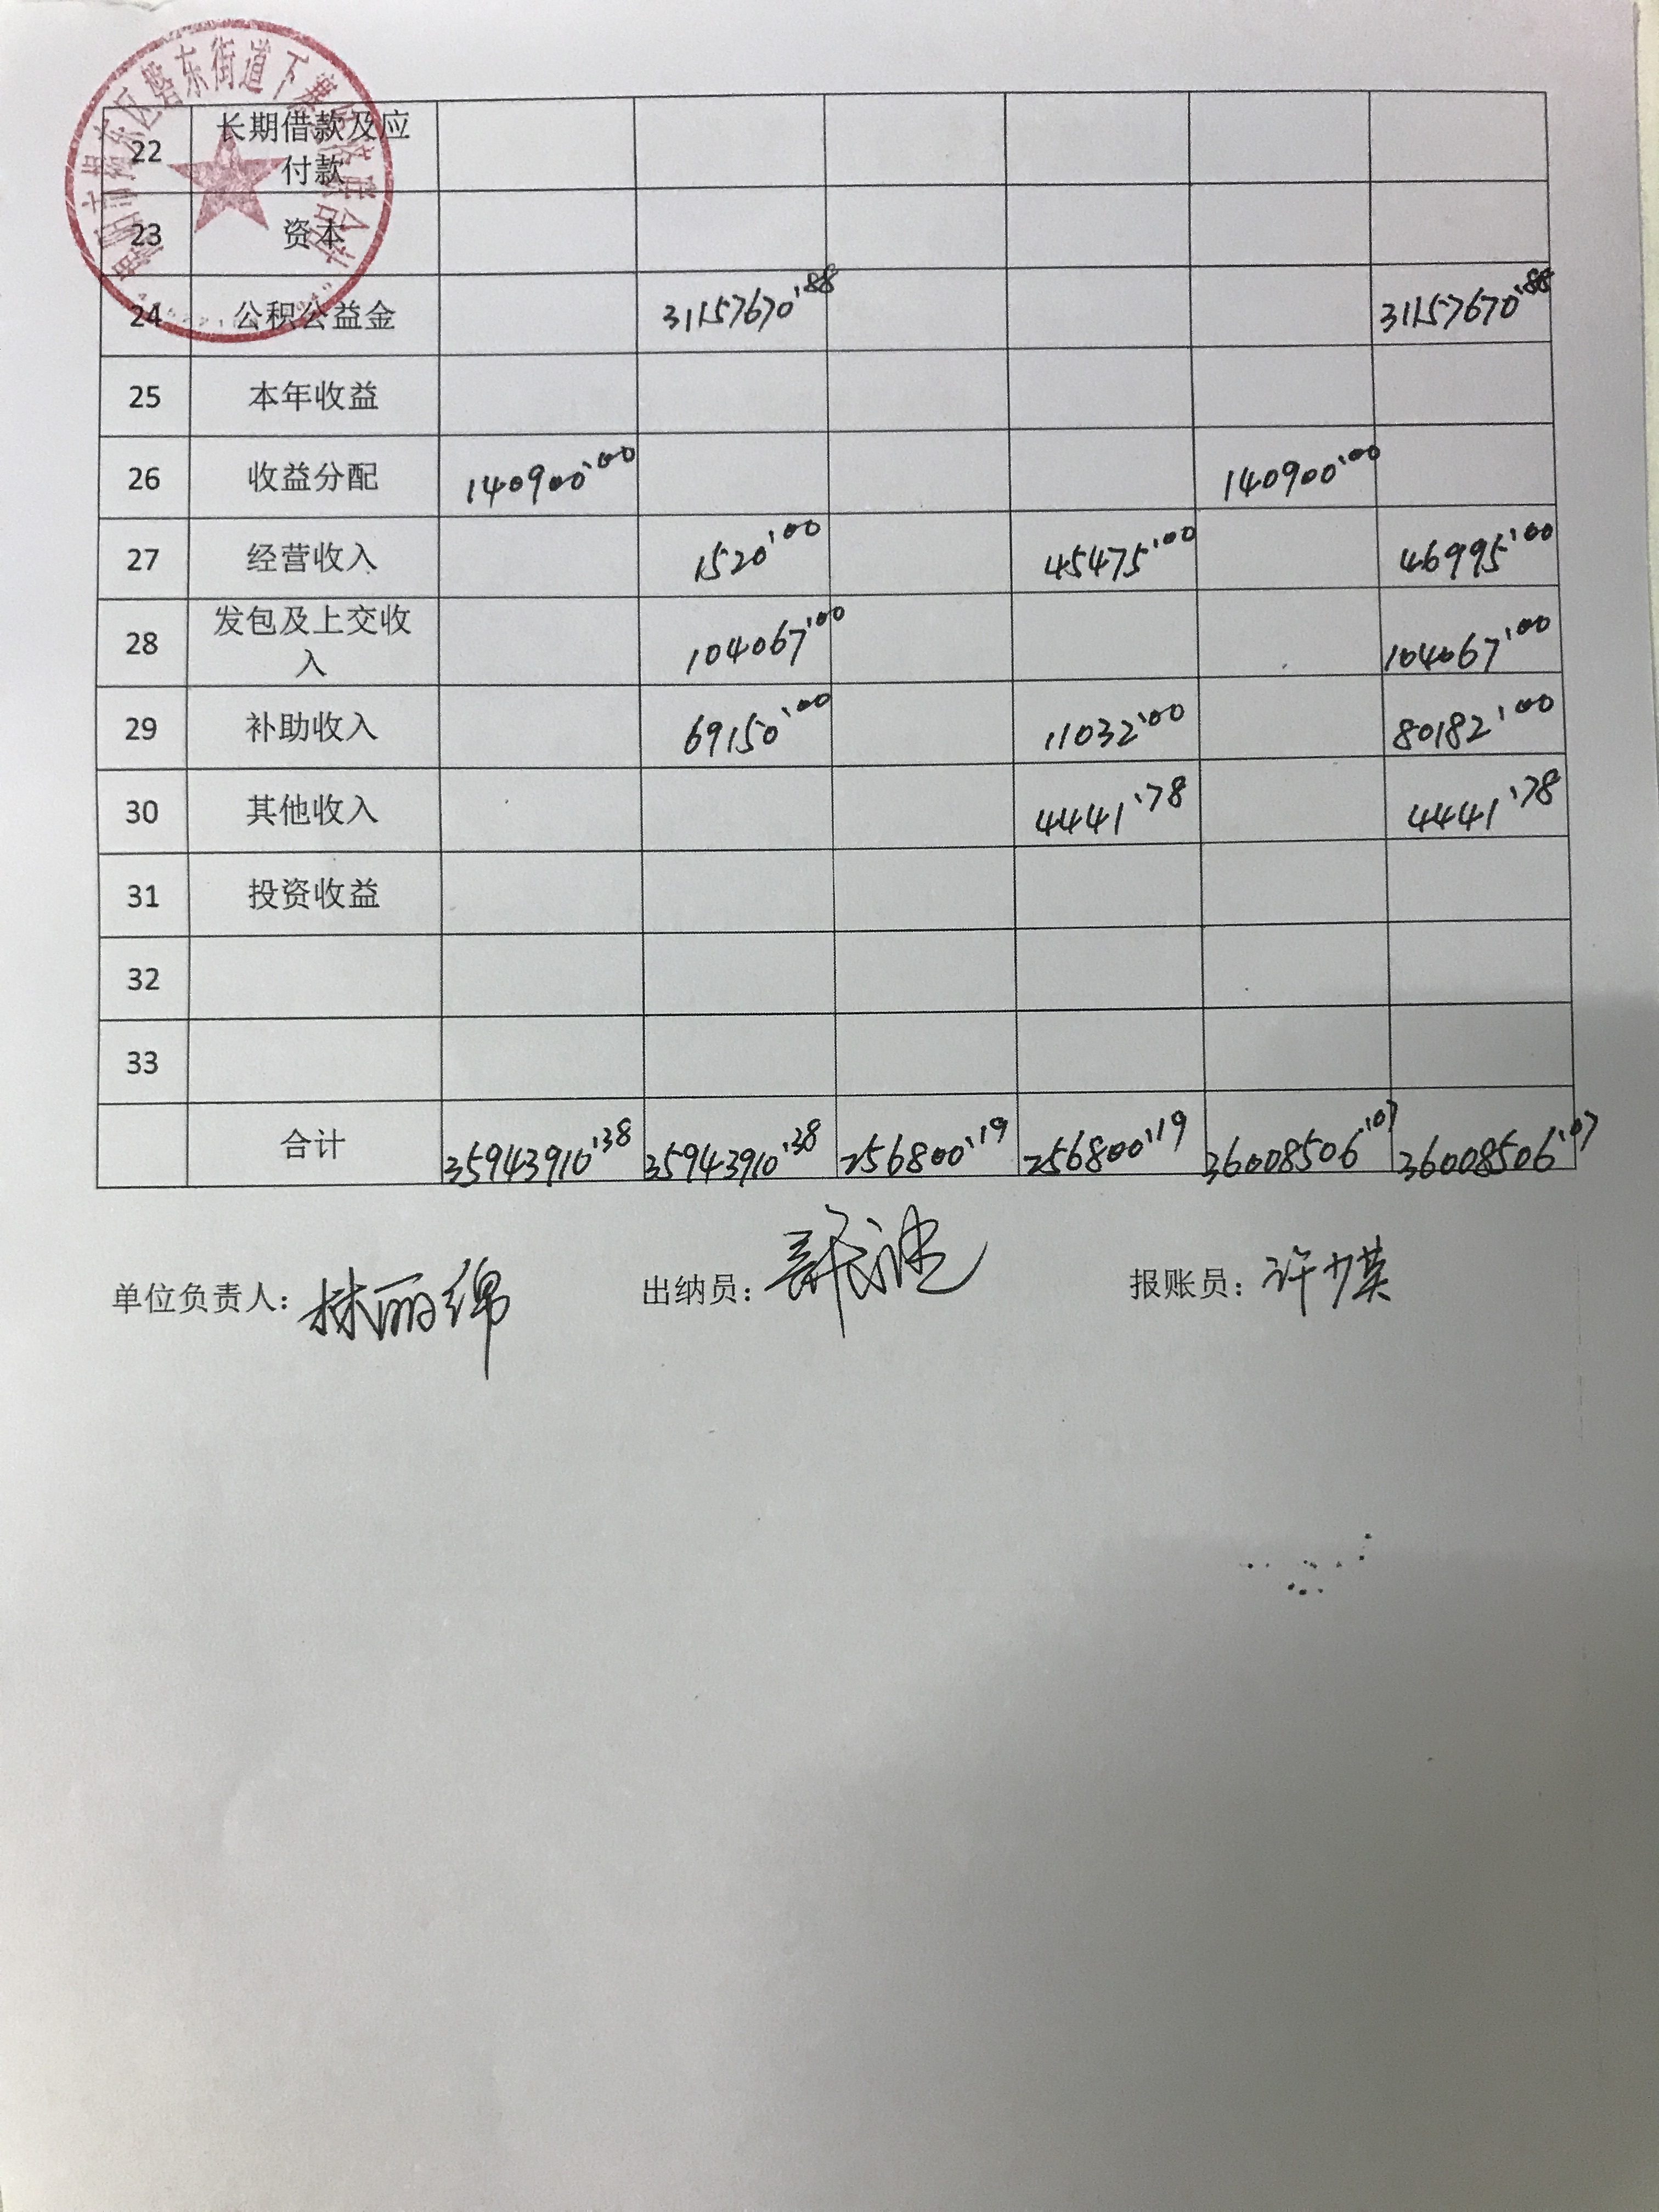 磐东街道下寨
22 长期借款及应
付款
23 资本
24 公积公益金 31157670.88 31157670.88
25 本年收益
26 收益分配 140900.00 140900.00
27 经营收入 1520.00 45475.00 46995.00
28 发包及上交收
入 104067.00 104067.00
29 补助收入 69150.00 11032.00 80182.00
30 其他收入 4441.78 4441.78
31 投资收益
32
33
合计 35943910.38 35943910.38 256800.19 256800.19 36008506.07 36008506.07
单位负责人：林丽绵 出纳员： 报账员：许少英